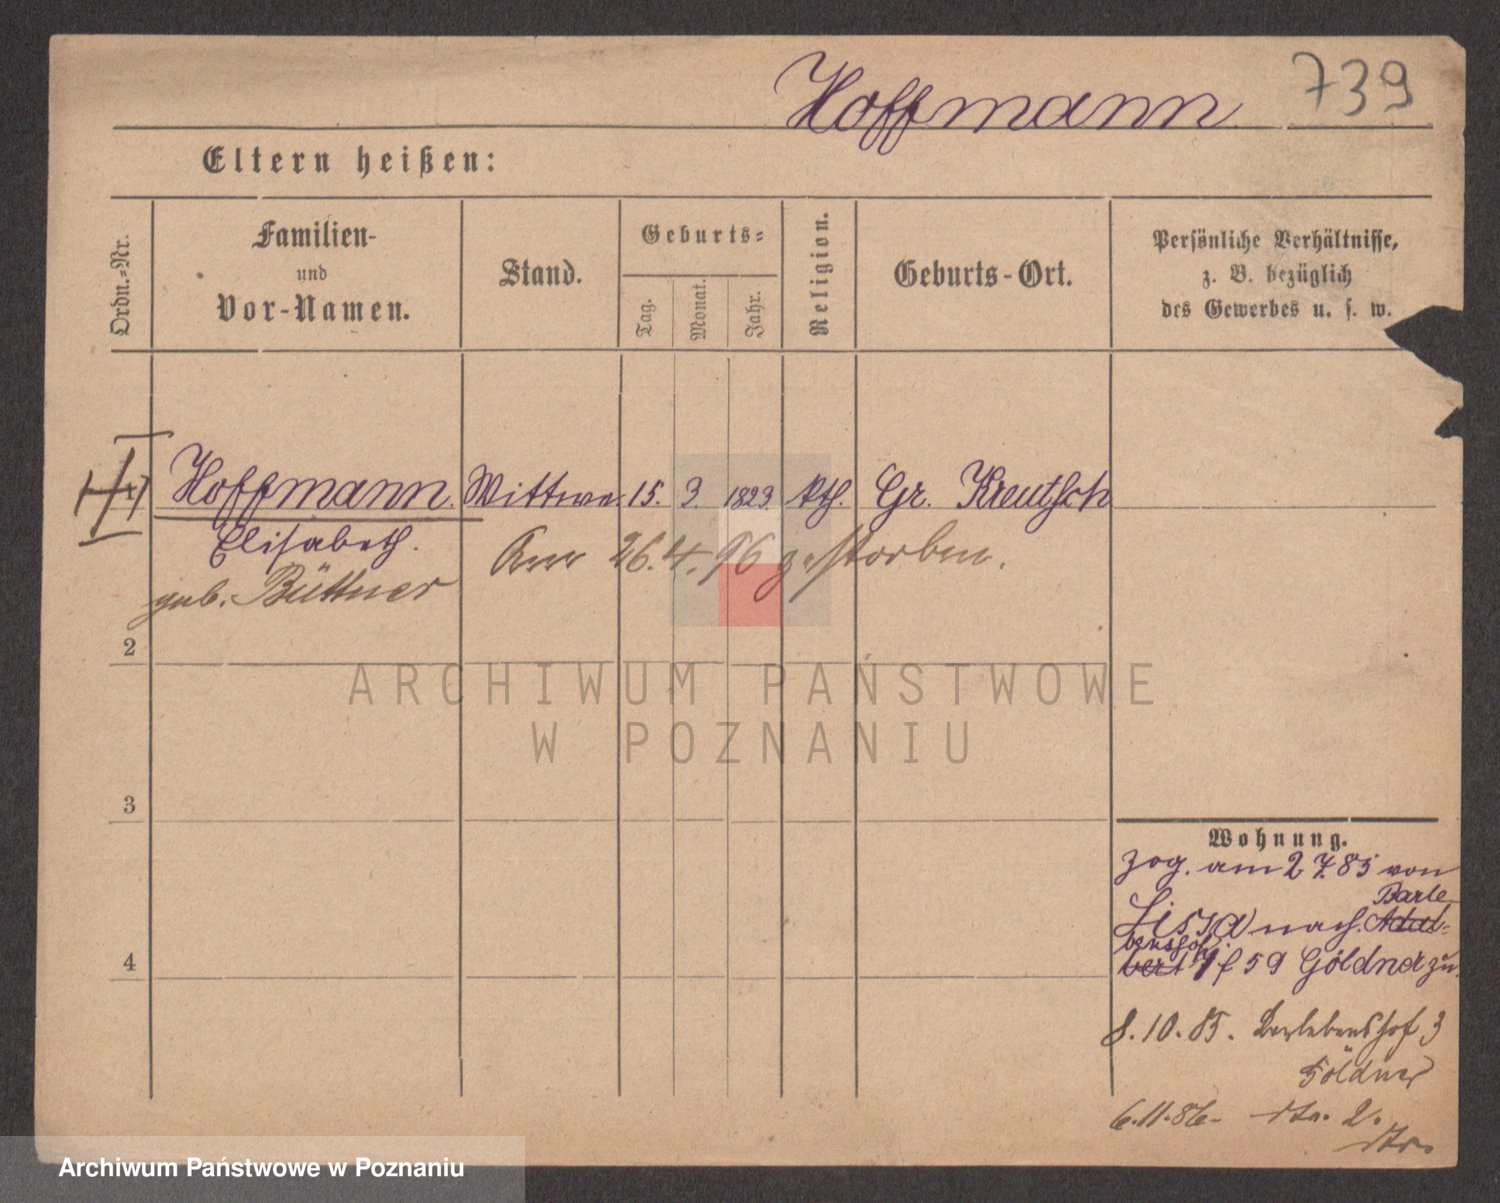 Hoffmann 739
Eltern heißen:
Ordn.-Nr.
Familien-
und
Vor-Namen.
Stand.
Geburts-
Tag.
Monat.
Jahr.
Religion.
Geburts-Ort.
Persönliche Verhältnisse,
z. B. bezüglich
des Gewerbes u. s. w.
1 Hoffmann. Wittwe 15. 3. 1823 kth. Gr. Kreutsch
Elisabeth.
geb. Büttner
26.4.96 gestorben.
2
3
4
Wohnung.
zog. am 2 7. 85 von
Lissa nach. Adal-
Barle-
benshof
bert 59 Göldner zu.
8. 10. 85. Berlebenshof 3
Göldner
6. 11. 86. dto. 2.
dto.
ARCHIWUM PAŃSTWOWE
W POZNANIU
Archiwum Państwowe w Poznaniu